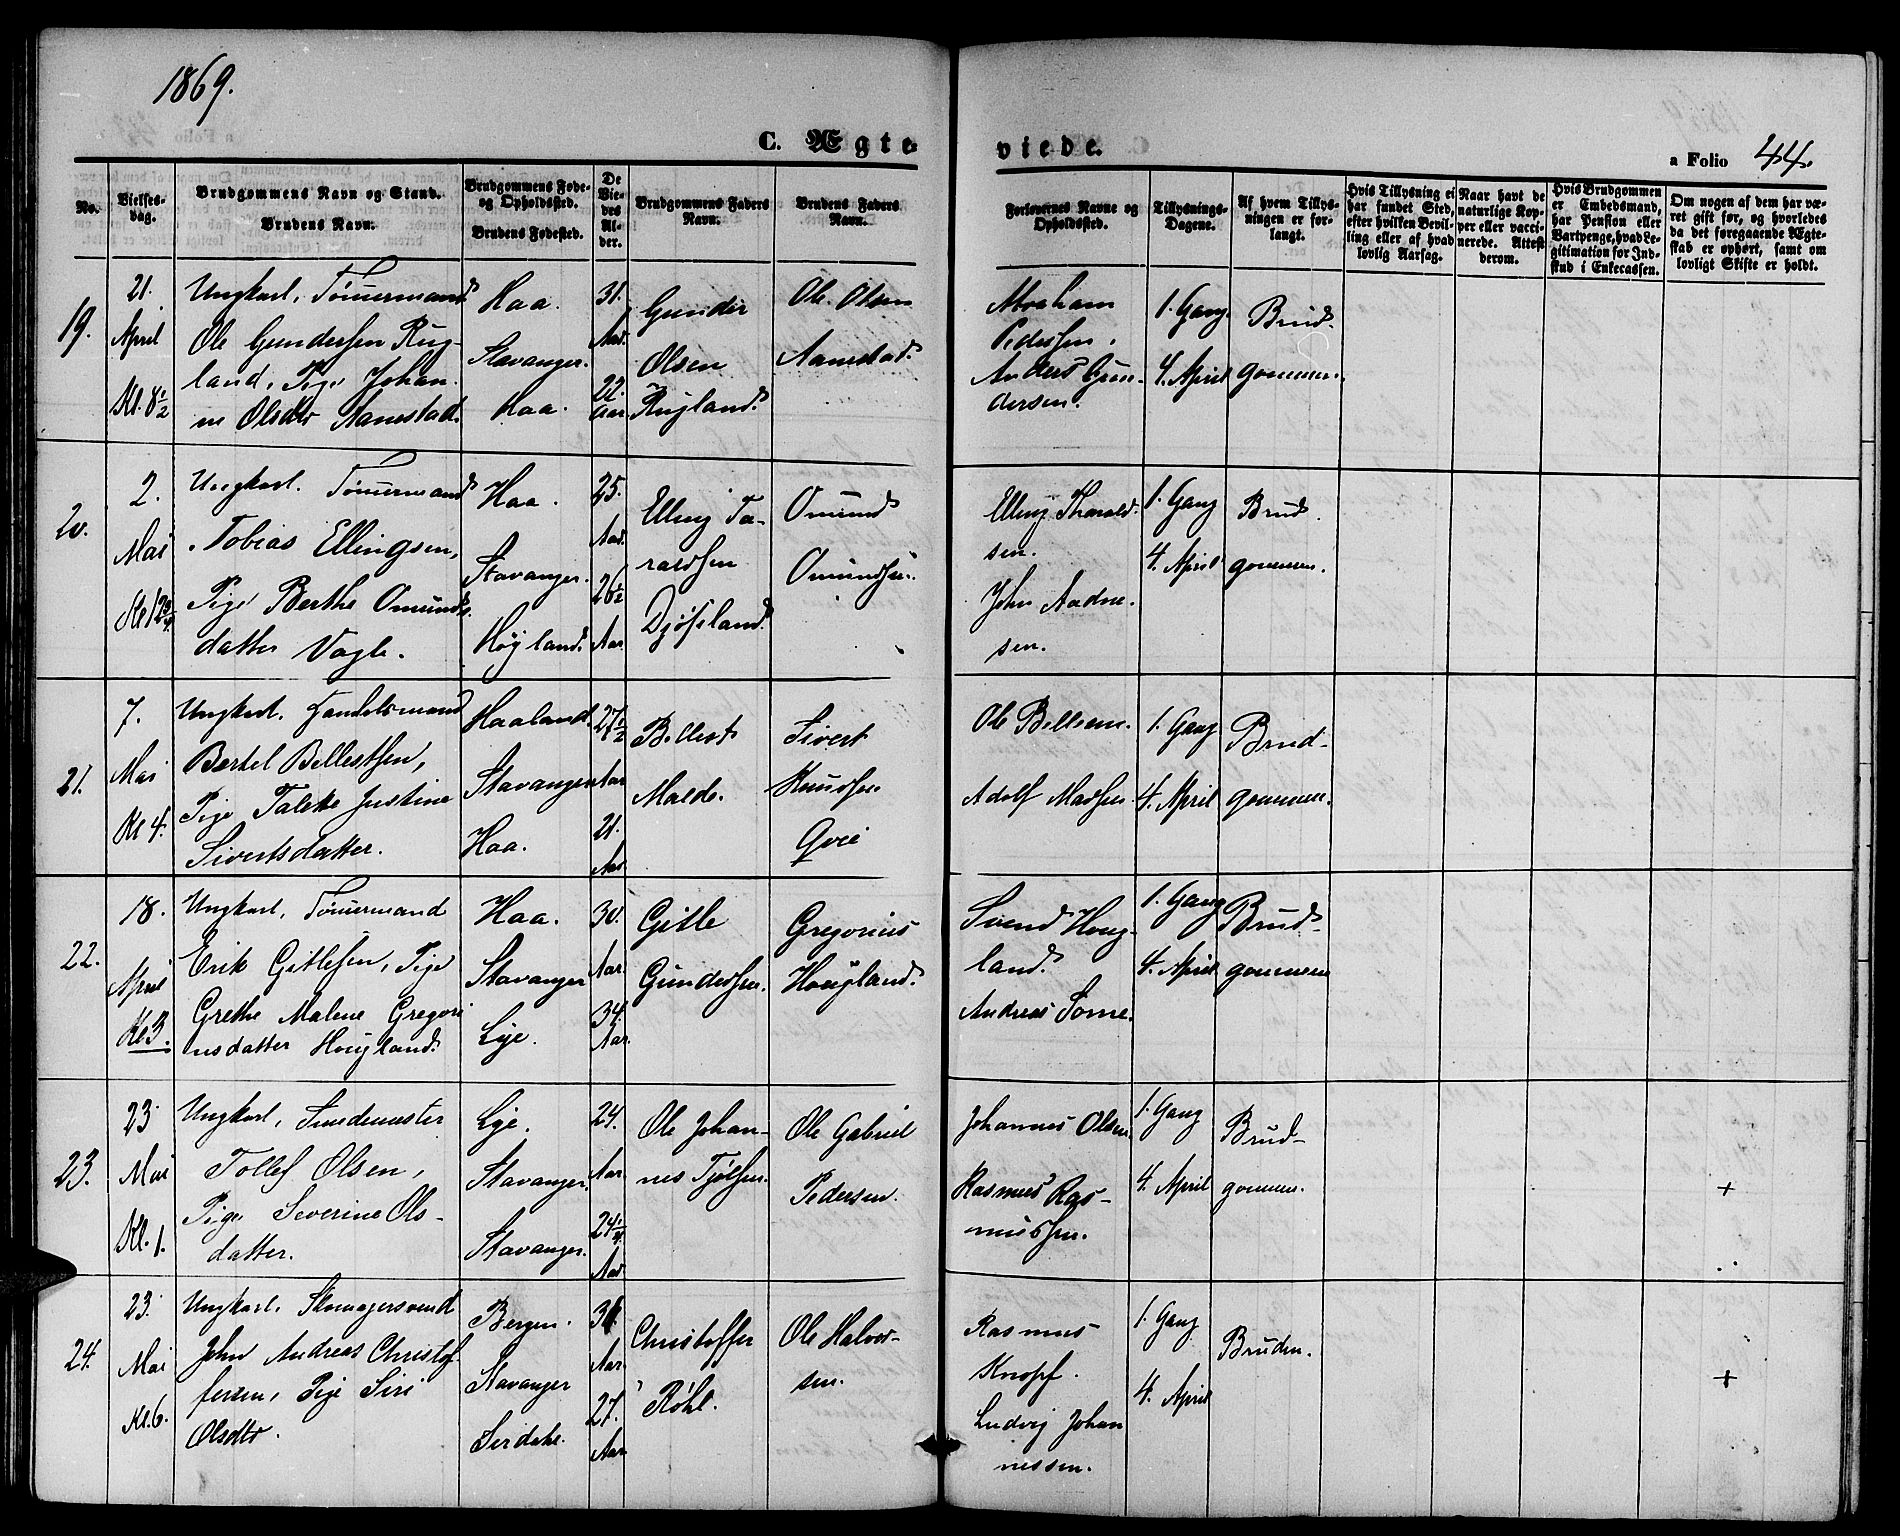 1869.
C. Ægteviede.
a Folio 44.
No.
Vielsesdag.
Brudgommens Navn og Stand.
Brudens Navn.
Brudgommens Føde- og Opholdssted.
Brudens Fødested.
De Viedes Alder.
Brudgommens Faders Navn.
Brudens Faders Navn.
Forlovernes Navne og Opholdssted.
Tillysnings-Dagene.
Af hvem Tillysningen er forlangt.
Hvis Tillysning ei har fundet Sted, efter hvilken Bevilling eller af hvad lovlig Aarsag.
Naar havt de naturlige Kopper eller vaccinerede. Attest derom.
Hvis Brudgommen er Embedsmand, har Pension eller Vartpenge, hvad Legitimation for Indskud i Enkecassen.
Om nogen af dem har været gift før, og hvorledes da det foregaaende Ægteskab er ophørt, samt om lovligt Skifte er holdt.
19.
21. April Kl. 8½
Ungkarl, Tømermand
Ole Gundersen Rug-
land, Pige Johan-
ne Olsdtr Aanestad.
Haa.
Stavanger.
Haa.
31. Aar.
22. Aar
Gunder
Olsen
Rugland.
Ole Olsen
Aanestad.
Abraham
Pedersen,
Anders Gun-
dersen.
1. Gang
4. April
Brud-
gommen.
20.
2. Mai Kl 12¾
Ungkarl. Tømermand
Tobias Ellingsen,
Pige Berthe Omunds-
datter Vagle.
Haa.
Stavanger.
Høyland.
25. Aar.
26½ Aar.
Elling Ta-
raldsen
Djøsland.
Omund
Omundsen.
Elling Tharald-
sen.
John Aadne-
sen.
1. Gang
4. April
Brud-
gommen.
21.
7. Mai Kl 4.
Ungkarl. Handelsmand
Bertel Bellestsen,
Pige Taleke Justine
Sivertsdatter.
Haaland.
Stavanger
Haa.
27½ Aar
21. Aar
Bellest
Malde.
Sivert
Knudsen
Qvie
Ole Bellesen.
Adolf Madsen.
1. Gang
4. April
Brud-
gommen.
22.
18. April Kl 3.
Ungkarl, Tømermand
Erik Gitlesen, Pige
Grethe Malene Gregori
usdatter Hougland.
Haa.
Stavanger
Lye.
30. Aar.
34 Aar.
Gitle
Gundersen.
Gregorius
Hougland.
Svend Houg-
land.
Andreas Some.
1. Gang
4. April
Brud-
gommen
23.
23 Mai Kl. 1.
Ungkarl, Smedemester
Tollef Olsen,
Pige Severine Ols-
datter.
Lye.
Stavanger.
Stavanger.
24. Aar
24¼ Aar.
Ole Johan-
nes Tjølsen.
Ole Gabriel
Pedersen.
Johannes Olsen.
Rasmus Ras-
mussen.
1. Gang
4. April
Brud-
gommen.
+
24.
23. Mai Kl. 6.
Ungkarl. Skomagersvend
John Andreas Christof-
fersen, Pige Siri
Olsdtr.
Bergen.
Stavanger
Sirdahl.
Aar
27. Aar
Christoffer
Røhl.
Ole Halvor-
sen.
Rasmus
Knopf.
Ludvig Johan
nessen.
1. Gang
4. April
Bruden.
+